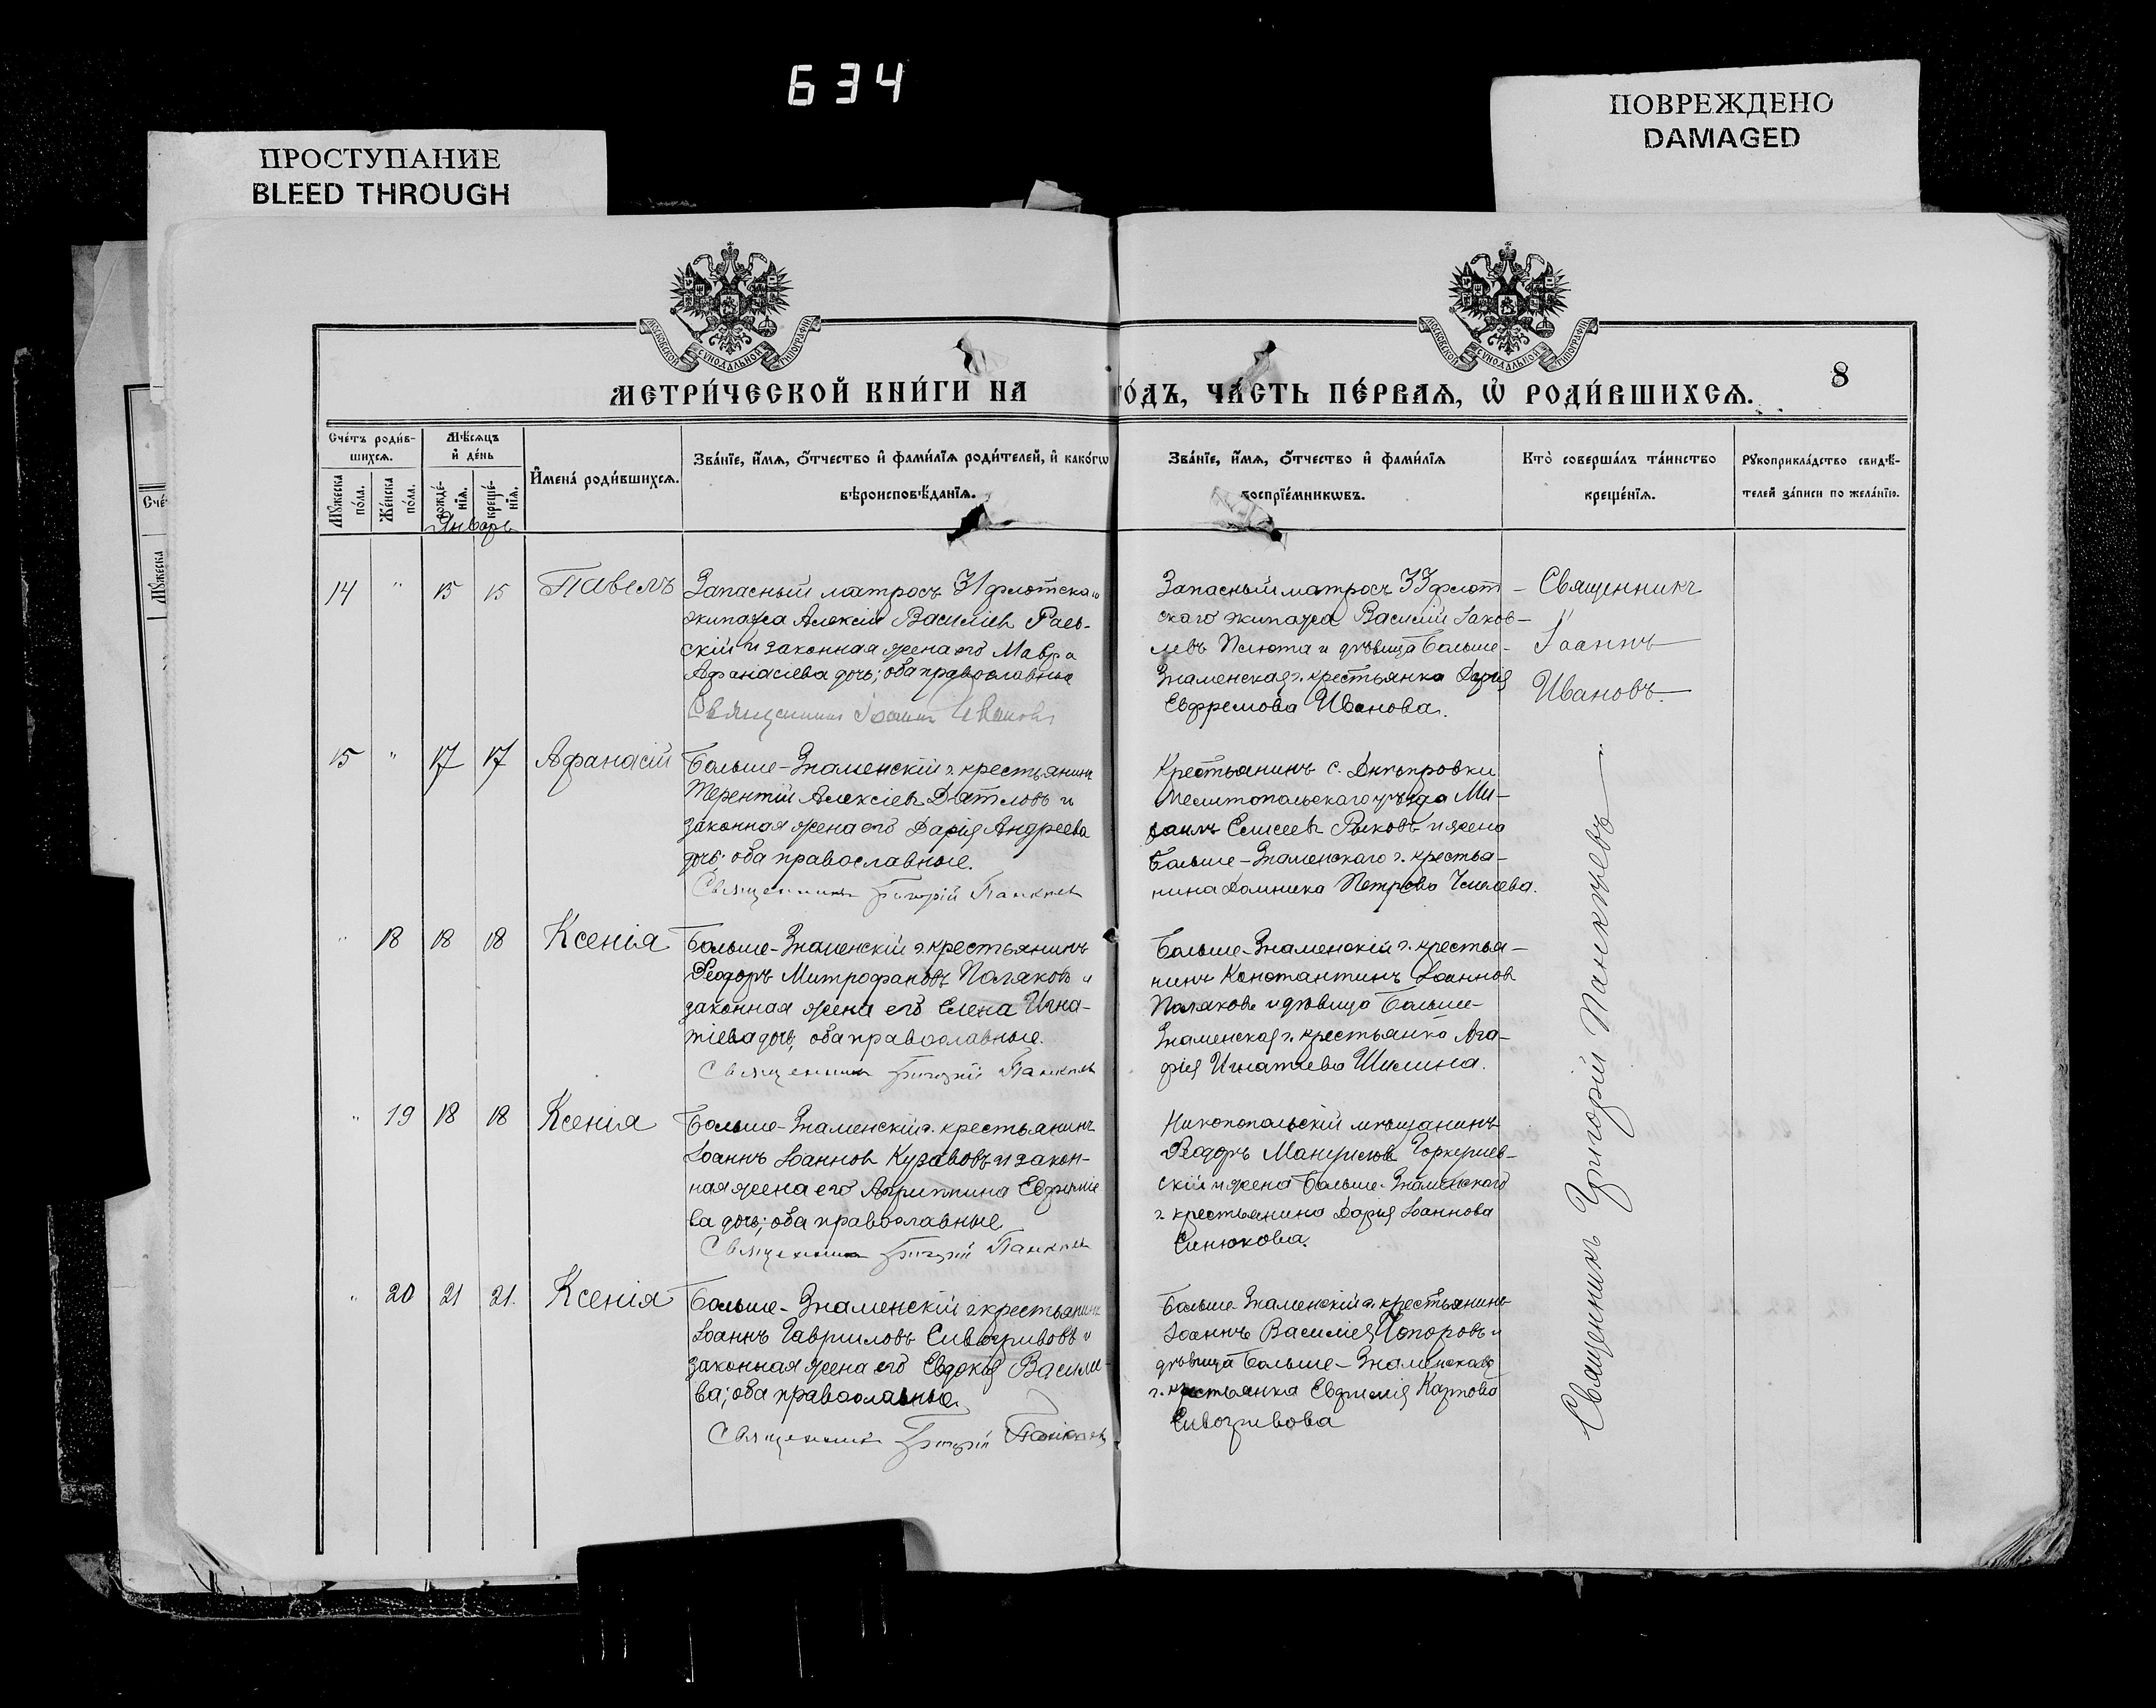 634
ПРОСТУПАНИЕ
BLEED THROUGH
ПОВРЕЖДЕНО
DAMAGED
МОСКОВСКОЙ СѴНОДАЛЬНОЙ ТИПОГРАФІИ
МОСКОВСКОЙ СѴНОДАЛЬНОЙ ТИПОГРАФІИ
8
МЕТРИ́ЧЕСКОЙ КНИ́ГИ НА ГО́ДЪ, ЧА́СТЬ ПЕ́РВАѦ, Ѡ҆ РОДИ́ВШИХСѦ.
Сче́тъ роди́в-
шихсѧ.
Мꙋ́жеска
по́ла.
Же́нска
по́ла.
Мѣ́сѧцъ
и҆ де́нь
рожде́-
нїѧ.
креще́-
нїѧ.
Январь
И҆мена̀ роди́вшихсѧ.
Зва́нїе, и҆́мѧ, ѻ҆́тчество и҆ фами́лїѧ роди́телей, и҆ како́гѡ
вѣроисповѣ́данїѧ.
Зва́нїе, и҆́мѧ, ѻ҆́тчество и҆ фами́лїѧ
воспрїе́мникѡвъ.
Кто̀ соверша́лъ та́инство
креще́нїѧ.
Рꙋкоприкла́дство свидѣ́-
телей за́писи по жела́нїю.
14 " 15 15 Павелъ
Запасный матросъ 31 флотскаго
экипажа Алексій Василіев Раев-
скій и законная жена его Мавра
Афанасіева дочь; оба православные
Священникъ Іоаннъ Ивановъ
Запасный матросъ 33 флот-
скаго экипажа Василій Іаков-
левъ Плюта и дѣвица Больше-
Знаменская г. крестьянка Дарія
Евфремова Иванова.
Священникъ
Іоаннъ
Ивановъ
15 " 17 17 Афанасій
Больше-Знаменскій г. крестьянинъ
Терентій Алексіевъ Дятловъ и
законная жена его Дарія Андреева
дочь; оба православные.
Священникъ Григорій Панкѣевъ
Крестьянинъ с. Днѣпровки
Мелитопольскаго уѣзда Ми-
хаилъ Елисеевъ Рыковъ и жена
Больше-Знаменскаго г. крестья-
нина Домника Петрова
" 18 18 18 Ксенія
Больше-Знаменскій г. крестьянинъ
Ѳеодоръ Митрофановъ Поляковъ и
законная жена его Елена Игна-
тіева дочь; оба православные.
Священникъ Григорій Панкѣевъ
Больше-Знаменскій г. крестья-
нинъ Константинъ Іоанновъ
Поляковъ и дѣвица Больше-
Знаменская г. крестьянка Ага-
фія Игнатіева Шилина.
" 19 18 18 Ксенія
Больше-Знаменскій г. крестьянинъ
Іоаннъ Іоанновъ и закон-
ная жена его Агриппина Евфиміе
ва дочь; оба православные
Священникъ Григорій Панкѣевъ
Никопопольскій мѣщанинъ
Ѳеодоръ
скій и жена Больше-Знаменскаго
г. крестьянина Дарія Іоаннова
Синюкова.
" 20 21 21. Ксенія
Больше-Знаменскій г крестьянинъ
Іоаннъ Гавриловъ Сивогривовъ и
законная жена его Евдокія Василіе-
ва; оба православные.
Священникъ Григорій Панкѣевъ
Больше-Знаменскій г. крестьянинъ
Іоаннъ Василіев Топоровъ и
дѣвица Больше-Знаменскаго
г. крестьянка Евфимія Карпова
Сивогривова
Священникъ Григорій Панкѣевъ
Сче́
Мꙋ́жеска